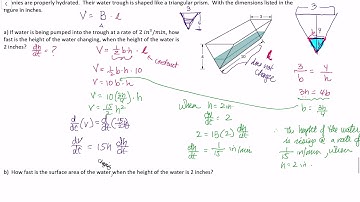 nnies are properly hydrated. Their water trough is shaped like a triangular prism. With the dimensions listed in the
figure in inches.
V = B · l
a) If water is being pumped into the trough at a rate of 2 in³/min, how
fast is the height of the water changing, when the height of the water is
2 inches? dh/dt = ?
V = ½ b·h · l
constant
V = ½ b·h · 10
V = 10 b·h
V = 10 (3h/4) · h
V = 15/2 h²
d/dt (V) = d/dt (15/2 h²)
dV/dt = 15h dh/dt
3
l does not change
when h = 2in
dV/dt = 2
2 = 15(2) dh/dt
dh/dt = 1/15 in/min
3
4
3/b = 4/h
3h = 4b
b = 3h/4
∴ the height of the water
is rising at a rate of
1/15 in/min, when
h = 2 in.
b) How fast is the surface area of the water when the height of the water is 2 inches?